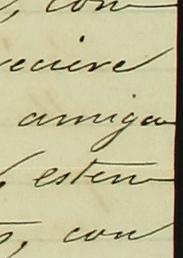 , con
reciere
amigo
, esten
, con